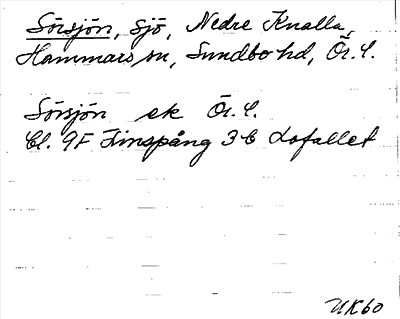 Sörsjön, sjö, Nedre Knalla,
Hammars sn, Sundbo hd, Ör. l.
Sörsjön ek Ör. l.
Bl. 9F Finspång 3 b Lofallet
UK60